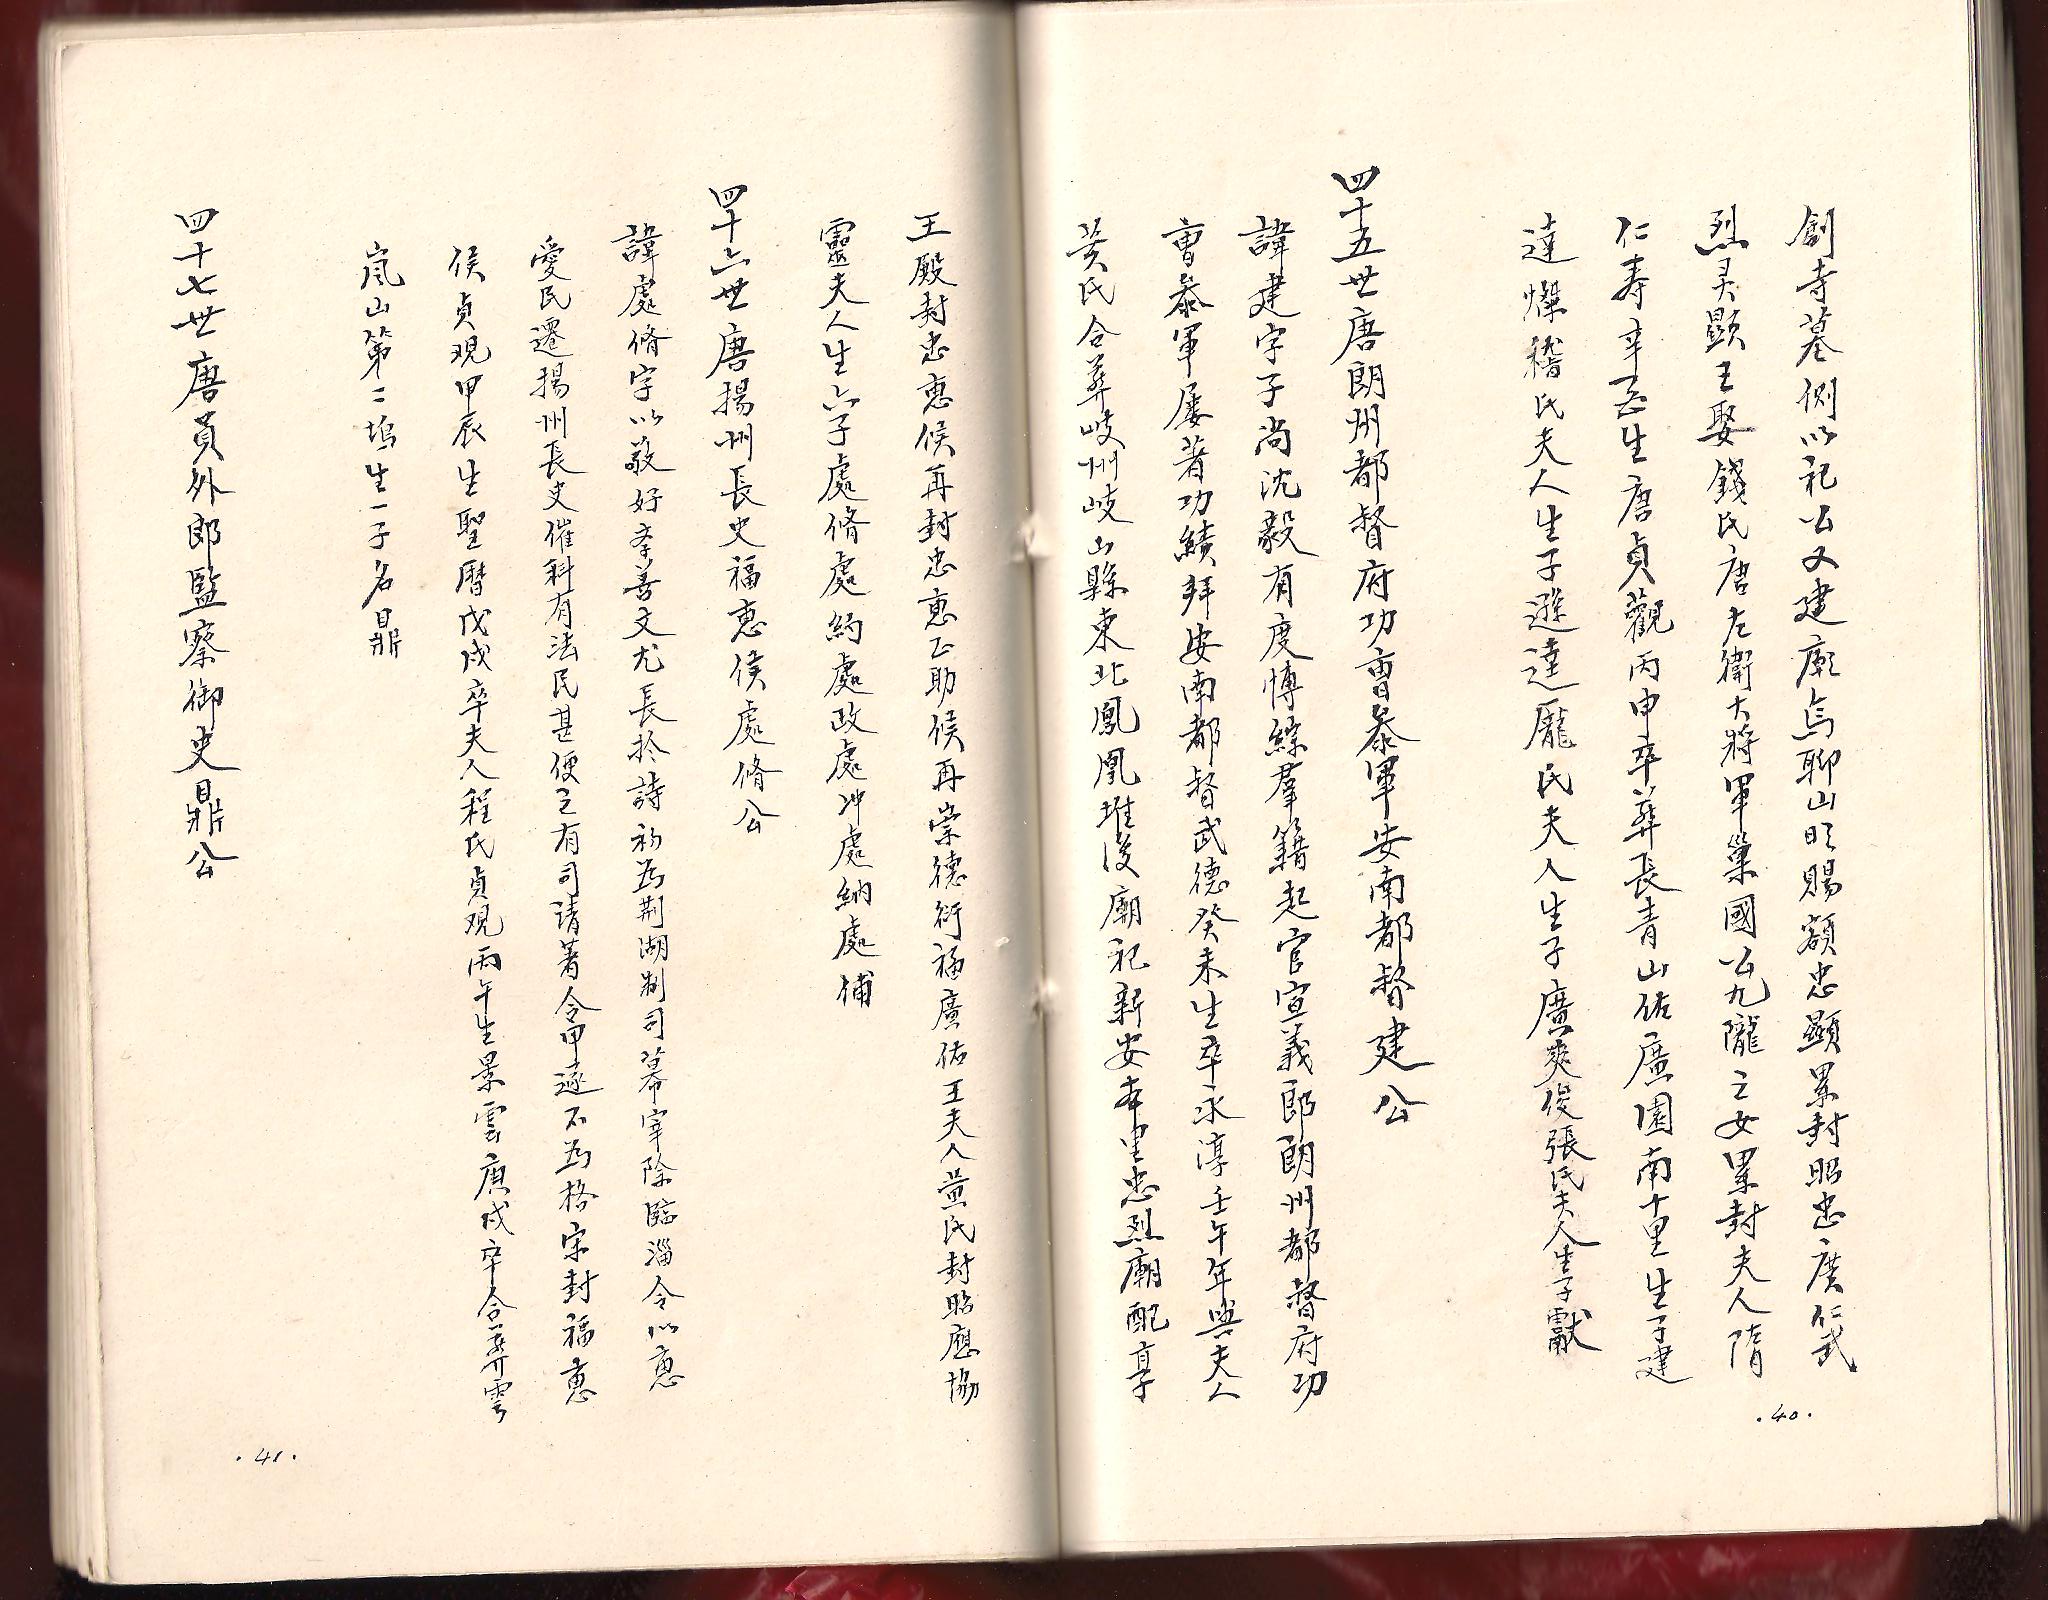 創寺墓側以祀公又建廟烏聊山賜額忠顯累封昭忠廣仁武
烈灵顯王娶錢氏唐左衛大將軍巢國公九隴之女累封夫人隋
仁寿辛酉生唐貞觀丙申卒葬長青山佑廣園南十里生子建
達爍稽氏夫人生子遜逵龐氏夫人生子廣爽俊張氏夫人生子獻
四十五世唐朗州都督府功曹叅軍安南都督建公
諱建字子尚沈毅有度博綜羣籍起官宣義郎朗州都督府功
曹叅軍屡著功績拜安南都督武德癸未生卒永淳壬午年與夫人
黃氏合葬岐州岐山縣東北鳳凰堆後廟祀新安本里忠烈廟配享
·40·
王殿封忠惠侯再封忠惠正助侯再崇德衍福廣佑王夫人黃氏封昭應協
靈夫人生六子處脩處約處政處冲處納處補
四十六世唐揚州長史福惠侯處脩公
諱處脩字以敬好孝善文尤長於詩初為荆湖制司幕宰除臨淄令以惠
愛民遷揚州長史催科有法民甚便之有司请著令甲遂不為格宋封福惠
侯貞观甲辰生聖曆戊戌卒夫人程氏貞观丙午生景雲庚戌卒合葬雲
嵐山第二塢生一子名鼎
四十七世唐員外郎監察御史鼎公
·41·